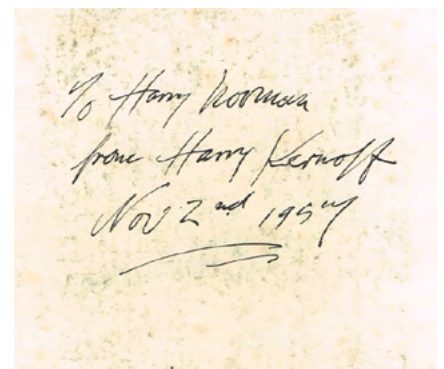 To Harry
from Harry Kernoff
Nov 2nd 1957